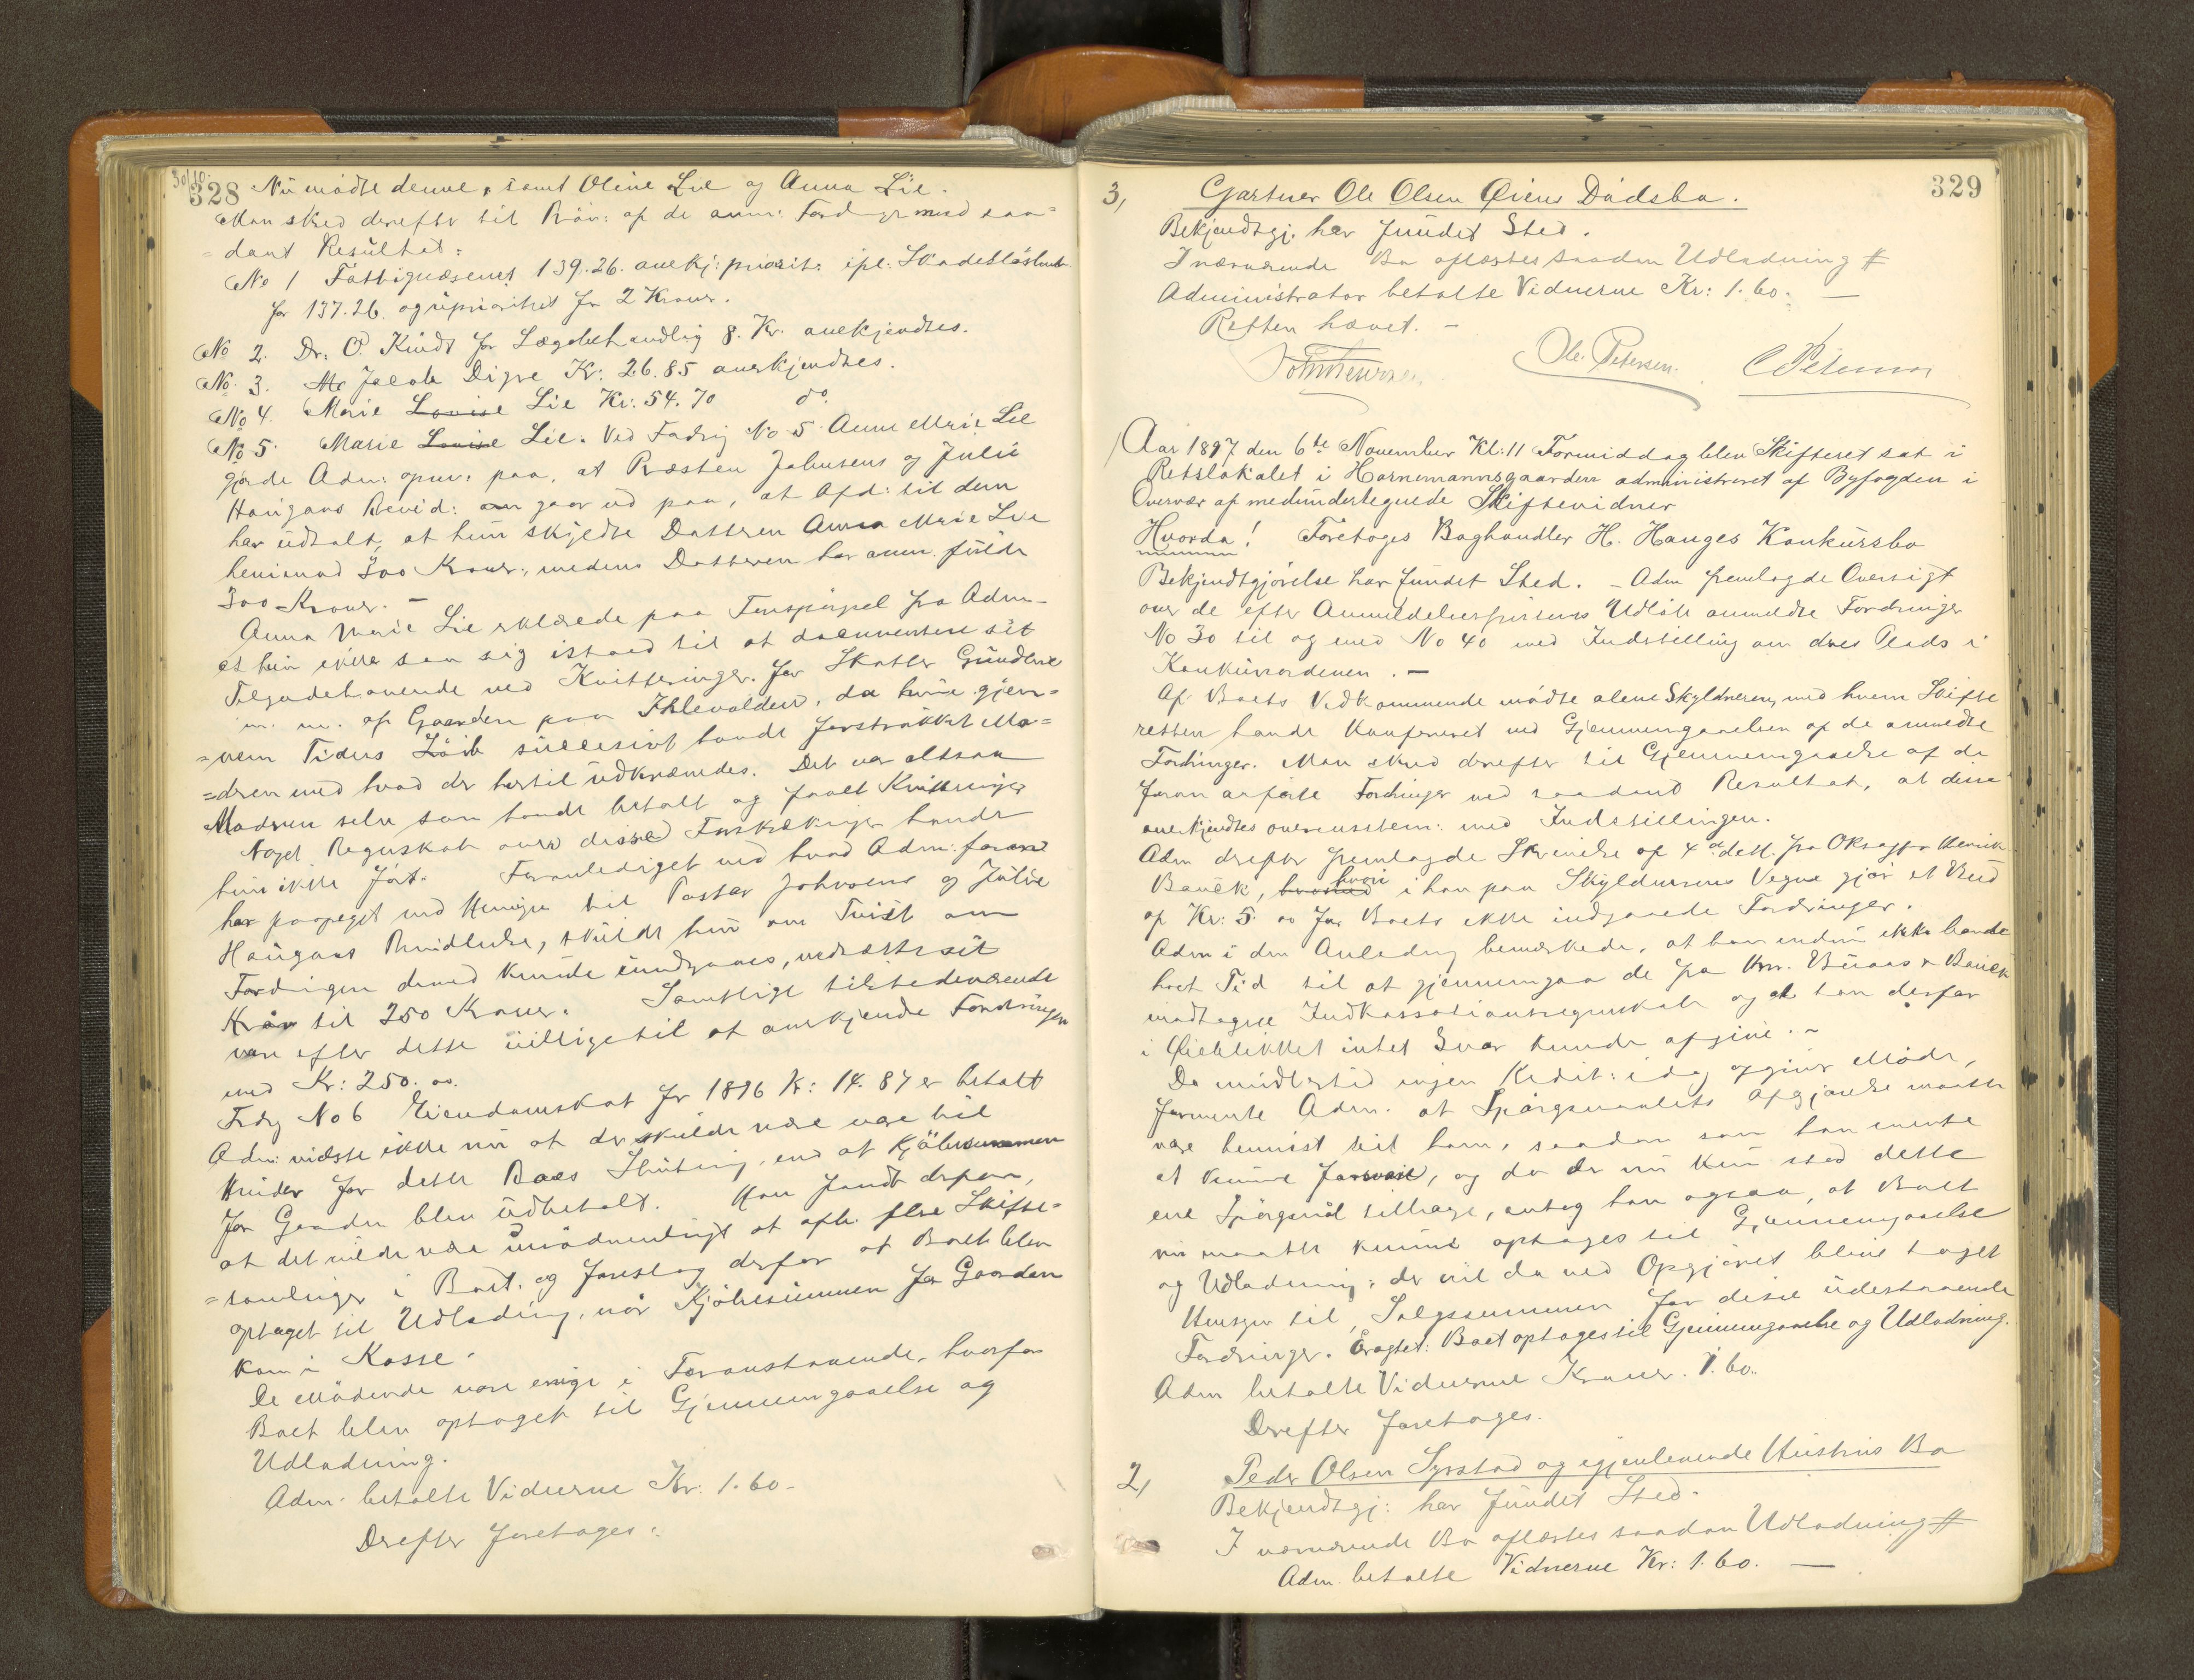 30/10.
328 Nu mödte denne, samt Oline Lie og Anna Lie.
Man skred derefter til Pröv: af de anm: Fordger med saa=
=dant Resultat:
No 1 Fattigvæsenet 139.26. anerkj: priorit: ifl. Skadeslösbrev
for 137.26. og uprioritet for 2 Kroner.
No 2. Dr. O. Kindt for Lægebehandling 8. Kr. anerkjendtes.
No. 3. Jacob Digre Kr: 26.85 anerkjendtes.
No 4. Marie Louise Lie Kr: 54.70 do.
No 5. Marie Louise Lie. Ved Fodring No 5 Anne Marie Lie
gjorde Adm: opm: paa, at Præsten Johnsens og Julie
Haugans Bevid: gaar ud paa, at Afd: til dem
har udtalt, at hun skyldte Datteren Anna Marie Lie
henimod 300 Kroner, medens Datteren har anm. fuldt
300 Kroner. —
Anna Marie Lie erklærede paa Forspörgsel fra Adm
at hun ikke saa sig istand til at documentere sit
Tilgodehavende ved Kvitteringer for Skatter Grundleie
m. m. af Gaarden paa Ihlevolden, da hun gjen=
=nem Tidens Löb successivt havde forstrakket Mo=
=deren med hvad der hertil udkrævedes. Det var altsaa
Moderen selv som havde betalt og faaet Kvitteringer
Noget Regnskab over disse Forstrækninger havde
hun ikke fört. Foranlediget ved hvad Adm: foran
har paapeget med Hensyn til Pastor Johnsens og Julie
Haugans Vidnesbyrd, skulde hun om Tvist om
Fordringen dermed kunde undgaaes, nedsætte sit
Krav til 250 Kroner. Samtlige tilstedeværende
var efter dette villige til at anerkjende Fordringen
med Kr: 250. oo.
Fodrg No 6 Eiendomskat for 1896 K: 14.87 er betalt
Adm: vidste ikke nu at der skulde være mere til
Hinder for dette Boes Slutning, end at Kjöbesummen
for Gaarden blev udbetalt. Han fandt derfor,
at det vilde være unödvendigt at afh. flere Skifte=
=samlinger i Boet, og foreslog derfor at Boet blev
optaget til Udlodning, naar Kjöbesummen for Gaarden
kom i Kasse.
De Mödende vare enige i Foranstaaende, hvorfor
Boet blev optaget til Gjennemgaaelse og
Udlodning.
Adm: betalte Vidnerne Kr: 1.60.
Derefter foretoges:
329
3, Gartner Ole Olsen Öiens Dödsbo.
Bekjendtgj. har fundet Sted.
I nærværende Bo oplæstes saadan Udlodning #
Administrator betalte Vidnerne Kr: 1.60. —
Retten hævet. —
Ole Petersen. C Petersen
Aar 1897 den 6te November Kl: 11 Formiddag blev Skifteret sat i
Retslokalet i Hornemannsgaarden administreret af Byfogden i
Overvær af medundertegnede Skiftevidner
Hvorda! Foretoges Boghandler H. Hanges Konkursbo
Bekjendtgjörelse har fundet Sted. — Adm fremlagde Oversigt
over de efter Anmeldelsesfristens Udlöb anmeldte Fordringer
No 30 til og med No 40 med Indstilling om deres Plads i
Konkursordenen. —
Af Boets Vedkommende mödte alene Skyldneren, med hvem Skifte
retten havde konfereret ved Gjennemgaaelsen af de anmeldte
Fordringer. Man skred derefter til Gjennemgaaelse af de
foran anförte Fordringer med saadant Resultat, at disse
anerkjendtes overensstem: med Indstillingen.
Adm derefter fremlagde Skrivelse af 4de ds. fra ORsagf. Henrik
Bauck, hvori han paa Skyldnerens Vegne gjör et Bud
af Kr: 5 oo for Boets ikke indgaaede Fordringer.
Adm i den Anledng bemærkede, at han endnu ikke havde
havt Tid til at gjennemgaa de fra Hrr. Buaas & Bauck
modtagne Indkassationsregnskab og at han derfor
i Öieblikket intet Svar kunde afgive. —
Da imidlertid ingen Kredit: idag afgiver Möde,
formente Adm. at Spörgsmaalets Afgjörelse maatte
være henvist til ham, saadan som han mente
at kunne forsvare, og da der nu kun stod dette
ene Spörgsmål tilbage, antog han ogsaa, at Boet
nu maatte kunne optages til Gjennemgaaelse
og Udlodning; der vil da ved Opgjöret blive taget
Hensyn til Salgssummen for disse udestaaende
Fordringer. Eragtet: Boet optages til Gjennemgaaelse og Udlodning.
Adm betalte Vidnerne Kroner. 1.60.
Derefter foretoges.
2, Peder Olsen Syrstad og igjenlevende Hustrus Bo
Bekjendtgj: har fundet Sted.
I nærværende Bo oplæstes saadan Udlodning #
Adm. betalte Vidnerne Kr: 1.60. —